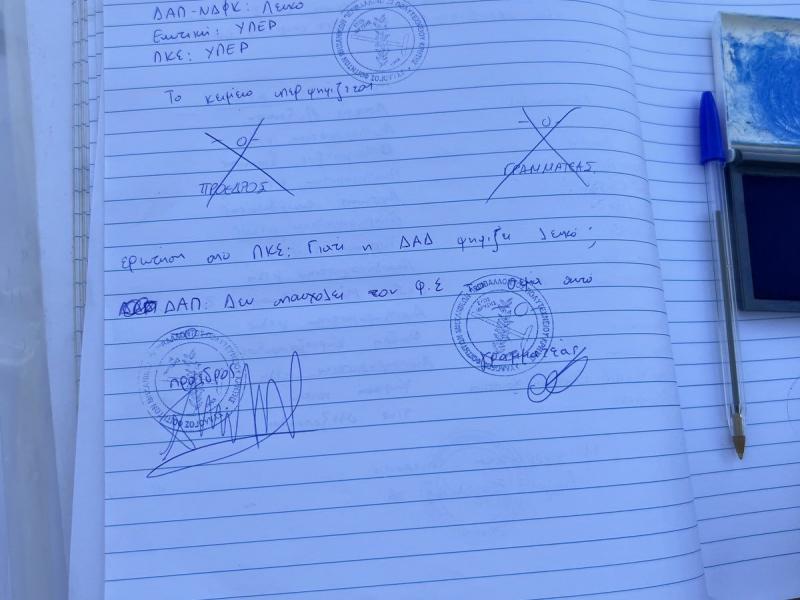 ΔΑΠ-ΝΔΦΚ: Λευκό
Ενωτική: ΥΠΕΡ
ΠΚΣ: ΥΠΕΡ
Το κείμενο υπερψηφίζεται
Ο
ΠΡΟΕΔΡΟΣ
Ο
ΓΡΑΜΜΑΤΕΑΣ
ερώτηση από ΠΚΣ: Γιατί η ΔΑΠ ψηφίζει λευκό;
ΔΑΠ: Δεν απασχολεί τον Φ.Σ το θέμα αυτό
πρόεδρος
γραμματέας